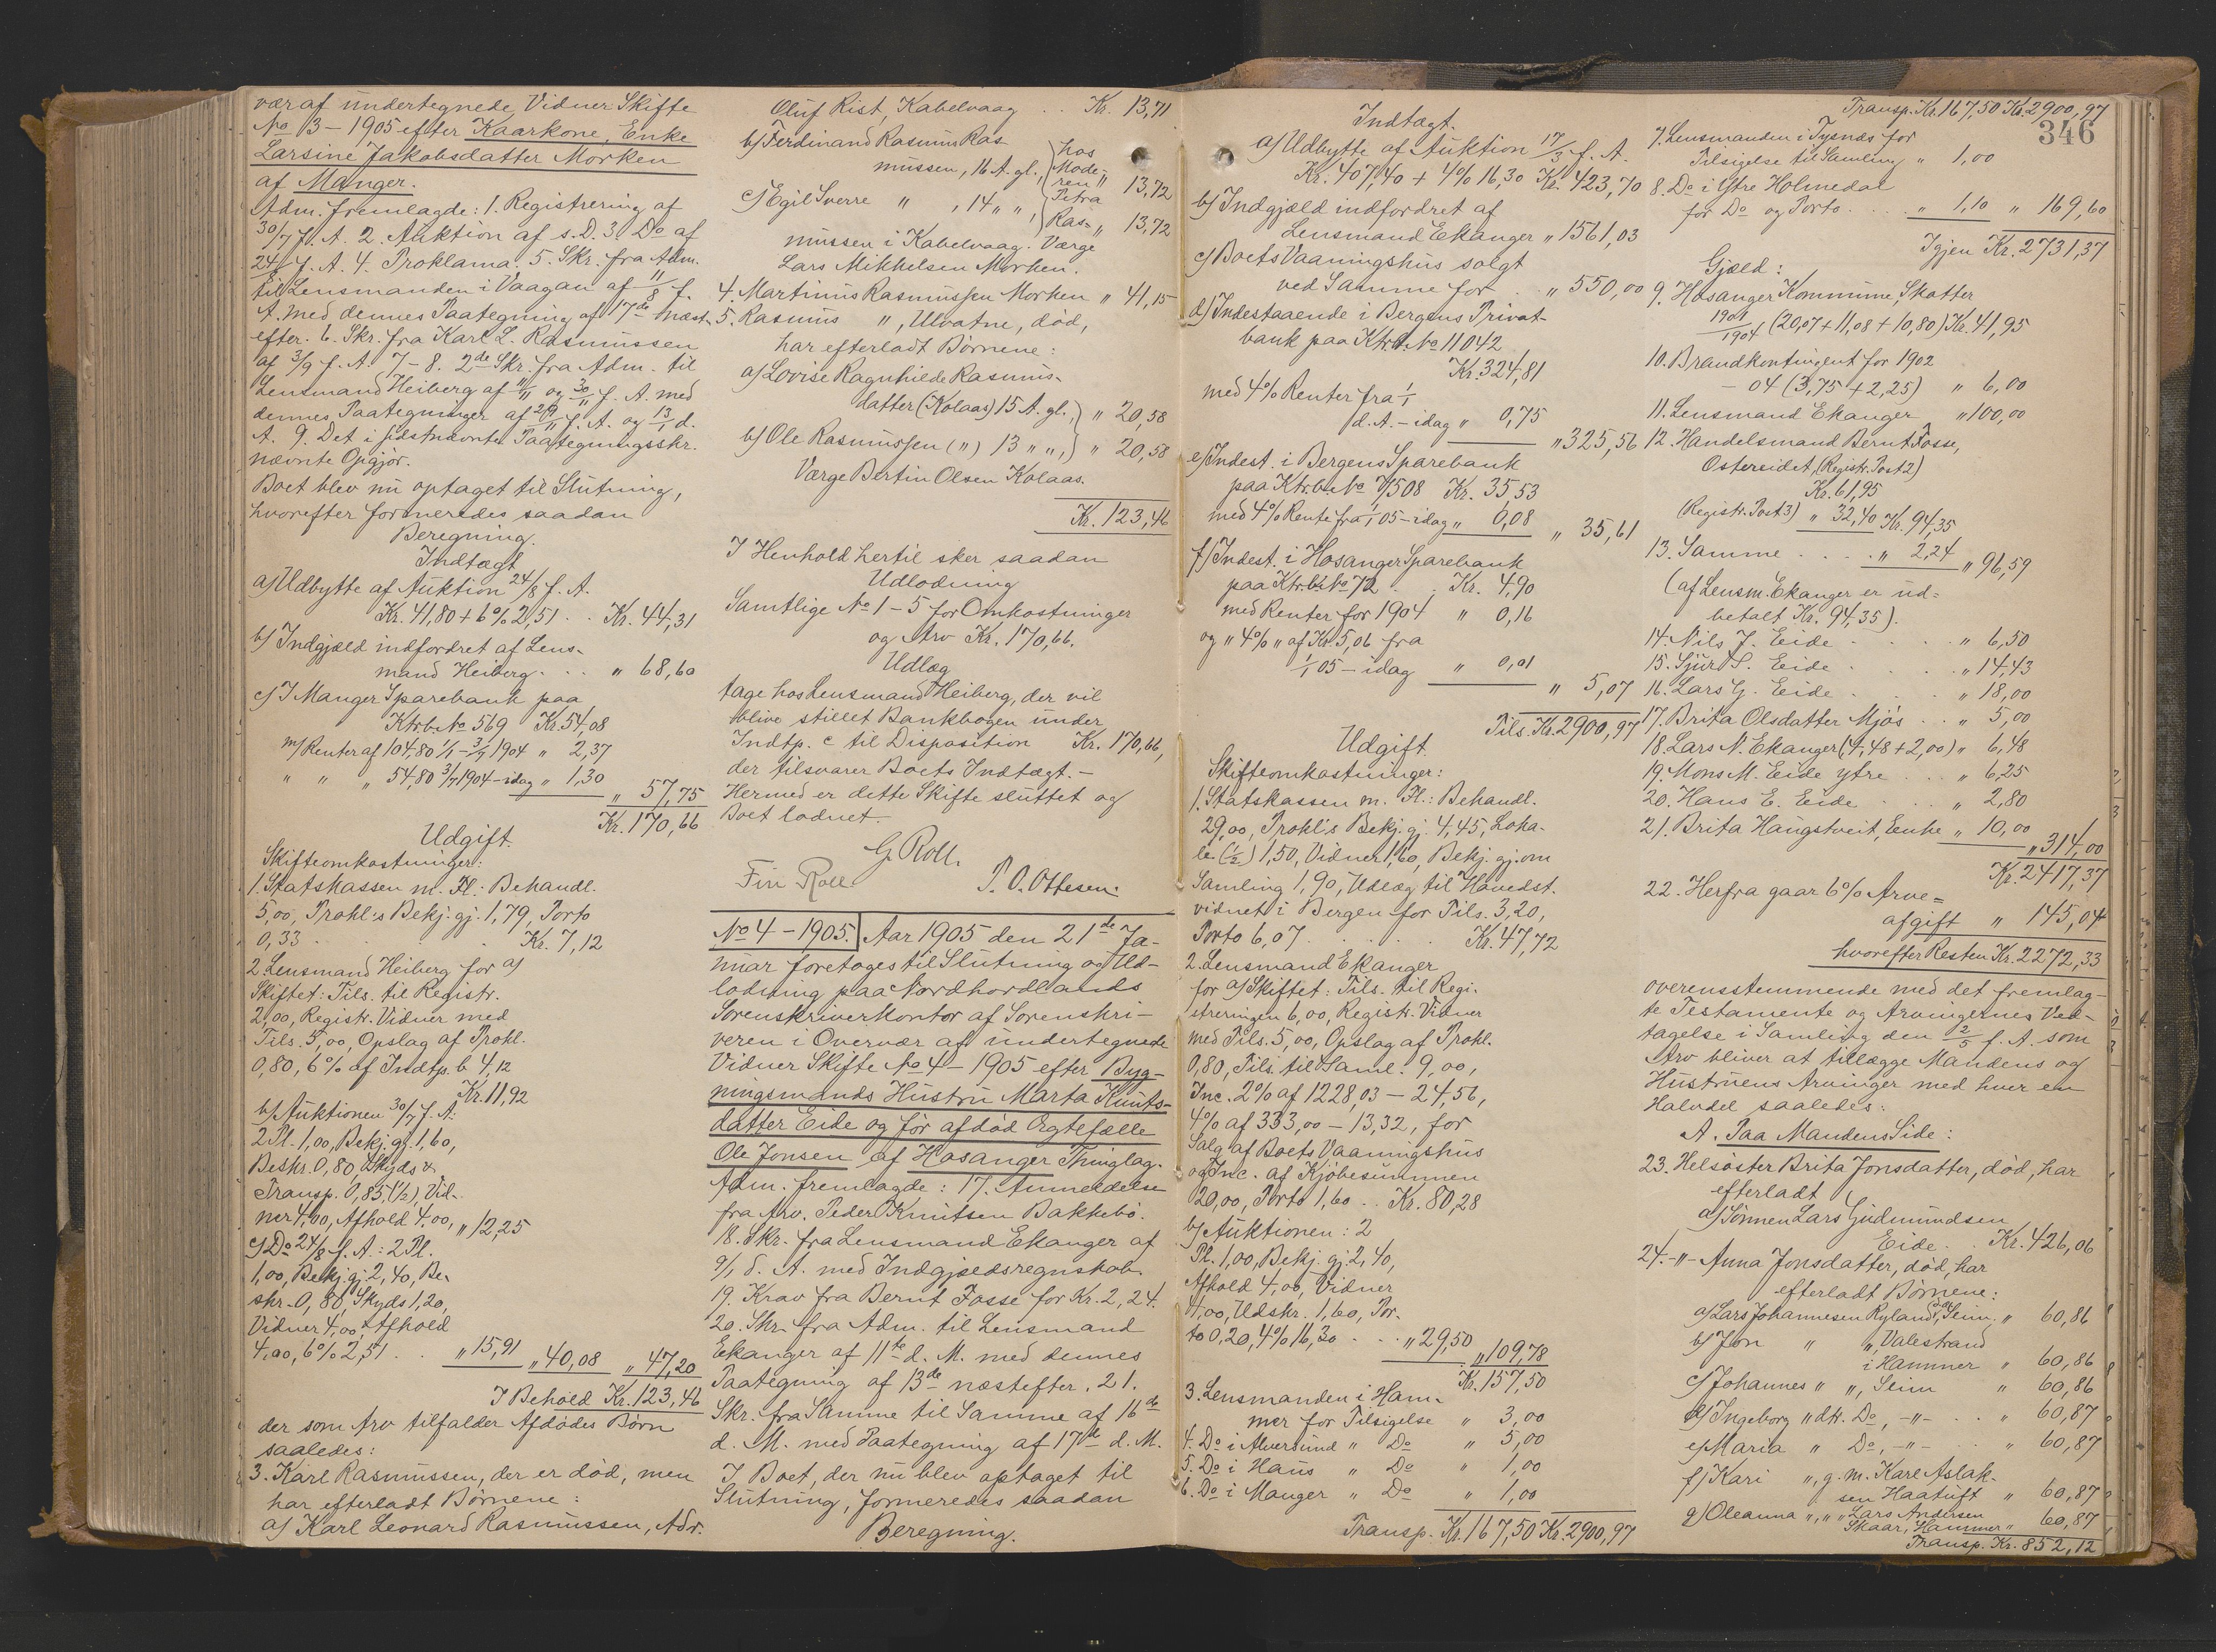 vær af undertegnede Vidner Skifte
No 3 - 1905 efter Kaarkone, Enke
Larsine Jakobsdatter Morken
af Manger.
Adm. fremlagde: 1. Registrering af
30/7 f. A. 2. Auktion af s. D. 3. Do af
24/8 f. A. 4. Proklama. 5. Skr. fra Adm.
til Lensmanden i Vaagan af 11/8 f.
A. med dennes Paategning af 17de næst-
efter. 6. Skr. fra Karl L. Rasmussen
af 3/9 f. A. 7-8. 2de Skr. fra Adm. til
Lensmand Heiberg af 11/11 og 30/11 f. A. med
dennes Paategninger af 29/11 f. A. og 13/1 d.
A. 9. Det i sidstnævnte Paategningsskr.
nævnte Opgjør.
Boet blev nu optaget til Slutning,
hvorefter formeredes saadan
Beregning.
Indtægt
a) Udbytte af Auktion 24/8 f. A.
Kr. 41,80 + 6% 2,51 . . Kr. 44,31
b) Indgjæld indfordret af Lens-
mand Heiberg . . . " 68,60
c) I Manger Sparebank paa
Ktrb. No 569 Kr. 54,08
m/ Renter af 104,80 1/1 - 3/7 1904 " 2,37
" " " 54,80 3/7 1904 - idag " 1,30
" 57,75
Kr. 170,66
Udgift.
Skifteomkostninger:
1. Statskassen m. Fl.: Behandl.
5,00, Prokl:s Bekj. gj. 1,79, Porto
0,33 . . . . Kr. 7,12
2. Lensmand Heiberg for a)
Skiftet: Tils. til Registr.
2,00, Registr. Vidner med
Tils. 5,00, Opslag af Prokl.
0,80, 6% af Indtp. b 4,12
Kr. 11,92
b) Auktionen 30/7 f. A:
2 Pl. 1,00, Bekj. gj. 1,60,
Beskr. 0,80 Skyds &
Transp. 0,85 (1/2), Vid-
ner 4,00, Afhold 4,00, " 12,25
c) Do 24/8 f. A.: 2 Pl.
1,00, Bekj. gj. 2,40, Be-
skr. 0,80, Skyds 1,20,
Vidner 4,00, Afhold
4,00, 6% 2,51 . . " 15,91 " 40,08 " 47,20
I Behold Kr. 123,46
der som Arv tilfalder Afdødes Børn
saaledes:
3. Karl Rasmussen, der er død, men
har efterladt Børnene:
a) Karl Leonard Rasmussen, Adr.
Oluf Rist, Kabelvaag . . Kr. 13,71
b) Ferdinand Rasmus Ras-
mussen, 16 A. gl., hos
Mode-
ren " 13,72
c) Egil Sverre " , 14 " " , Petra
Ras- " 13,72
mussen i Kabelvaag. Værge
Lars Mikkelsen Morken.
4. Martinus Rasmussen Morken " 41,15
5. Rasmus " , Ulvatne, død,
har efterladt Børnene:
a) Lovise Ragnhilde Rasmus-
datter (Kolaas) 15 A. gl., " 20,58
b) Ole Rasmussen (") 13 " ", " 20,58
Værge Bertin Olsen Kolaas.
Kr. 123,46
I Henhold hertil sker saadan
Udlodning
Samtlige No 1-5 for Omkostninger
og Arv Kr. 170,66.
Udlæg
tage hos Lensmand Heiberg, der vil
blive stillet Bankbogen under
Indtp. c til Disposition Kr. 170,66,
der tilsvarer Boets Indtægt. -
Hermed er dette Skifte sluttet og
Boet lodnet. -
G. Roll.
Finn Roll P. O. Ottesen.
No 4 - 1905. Aar 1905 den 21de Ja-
nuar foretoges til Slutning og Ud-
lodning paa Nordhordlands
Sorenskriverkontor af Sorenskri-
veren i Overvær af undertegnede
Vidner Skifte No 4 - 1905 efter Byg-
ningsmands Hustru Marta Knuts-
datter Eide og før afdød Ægtefælle
Ole Jonsen af Hosanger Thinglag.
Adm. fremlagde: 17. Anmeldelse
fra Arv. Peder Knutsen Bakkebø.
18. Skr. fra Lensmand Ekanger af
9/1 d. A. med Indgjældsregnskab.
19. Krav fra Bernt Fosse for Kr. 2,24.
20. Skr. fra Adm. til Lensmand
Ekanger af 11te d. M. med dennes
Paategning af 13de næstefter. 21.
Skr. fra Samme til Samme af 16de
d. M. med Paategning af 17de d. M.
I Boet, der nu blev optaget til
Slutning, formeredes saadan
Beregning.
Indtægt.
a) Udbytte af Auktion 17/3 f. A.
Kr. 407,40 + 4% 16,30 Kr. 423,70
b) Indgjæld indfordret af
Lensmand Ekanger " 1561,03
c) Boets Vaaningshus solgt
ved Samme for . . " 550,00
d) Indestaaende i Bergens Privat-
bank paa Ktrb. No 11042
Kr. 324,81
med 4% Renter fra 1/1
d. A. - idag " 0,75
" 325,56
e) Indest. i Bergens Sparebank
paa Ktrb. No 7/1508 Kr. 35 53
med 4% Rente fra 1/1 05 - idag " 0,08
" 35,61
f) Indest. i Hosanger Sparebank
paa Ktrb. No 72 . . Kr. 4,90
med Renter for 1904 " 0,16
og " 4% " af Kr. 5,06 fra
1/1 05 - idag " 0,01
" 5,07
Tils. Kr. 2900,97
Udgift.
Skifteomkostninger:
1. Statskassen m. Fl.: Behandl.
29,00, Prokl:s Bekj. gj. 4,45, Loka-
le (1/2) 1,50, Vidner 1,60, Bekj. gj. om
Samling 1,90, Udlæg til Hovedst.
vidnet i Bergen for Tils. 3,20,
Porto 6,07 . . . . Kr. 47,72
2. Lensmand Ekanger
for a) Skiftet: Tils. til Regi-
streringen 6,00, Registr. Vidner
med Tils. 5,00, Opslag af Prokl.
0,80, Tils. til Saml. 9,00,
Inc. 2% af 1228,03 - 24,56,
4% af 333,00 - 13,32, for
Salg af Boets Vaaningshus
og Inc. af Kjøbesummen
20,00, Porto 1,60 . . Kr. 80,28
b) Auktionen: 2
Pl. 1,00, Bekj. gj. 2,40,
Afhold 4,00, Vidner
4,00, Udskr. 1,60, Por-
to 0,20, 4% 16,30 . . . " 29,50
" 109,78
Kr. 157,50
3. Lensmanden i Ham-
mer for Tilsigelse " 3,00
4. Do i Alversund " Do " 5,00
5. Do i Haus " Do " 1,00
6. Do i Manger " Do " 1,00
Transp. Kr. 167,50 Kr. 2900,97
Transp. Kr. 167,50 Kr. 2900,97
346
7. Lensmanden i Tysnæs for
Tilsigelse til Samling " 1,00
8. Do i Ytre Holmedal
for Do og Porto . . . " 1,10 " 169,60
Igjen Kr. 2731,37
Gjæld:
9. Hosanger Kommune, Skatter
1901/1904 (20,07 + 11,08 + 10,80) Kr. 41,95
10. Brandkontingent for 1902
- 04 (3,75 + 2,25) " 6,00
11. Lensmand Ekanger " 100,00
12. Handelsmand Bernt Fosse,
Ostereidet, (Registr. Post 2)
Kr. 61,95
(Registr. Post 3) " 32,40 Kr. 94,35
13. Samme . . . . " 2,24 " 96,59
(af Lensm. Ekanger er ud-
betalt Kr. 94,35).
14. Nils J. Eide . . . " 6,50
15. Sjur S. Eide . . . " 14,43
16. Lars G. Eide . . . " 18,00
17. Brita Olsdatter Mjøs . . " 5,00
18. Lars N. Ekanger (4,48 + 2,00) " 6,48
19. Mons M. Eide ytre . . . " 6,25
20. Hans E. Eide . . . " 2,80
21. Brita Haugstveit, Enke " 10,00 " 314,00
Kr. 2417,37
22. Herfra gaar 6% Arve-
afgift " 145,04
hvorefter Resten Kr. 2272,33
overensstemmende med det fremlag-
te Testamente og Arvingernes Ved-
tagelse i Samling den 2/5 f. A. som
Arv bliver at tillægge Mandens og
Hustruens Arvinger med hver en
Halvdel saaledes:
A. Paa Mandens Side:
23. Helsøster Brita Jonsdatter, død, har
efterladt
a) Sønnen Lars Gudmundsen
Eide . . Kr. 426,06
24. -"- Anna Jonsdatter, død, har
efterladt Børnene:
a) Lars Johannesen Ryland, Seim " 60,86
b) Jon " " , Valestrand
i Hammer " 60,86
c) Johannes " " , Seim " 60,86
d) Ingeborg " dtr. Do, -"- . . " 60,87
e) Maria " Do, -"- . . " 60,87
f) Kari " , g. m. Karl Aslak-
sen Haatuft " 60,87
g) Oleanna " , " " Lars Andersen
Skaar, Hammer " 60,87
Transp. Kr. 852,12